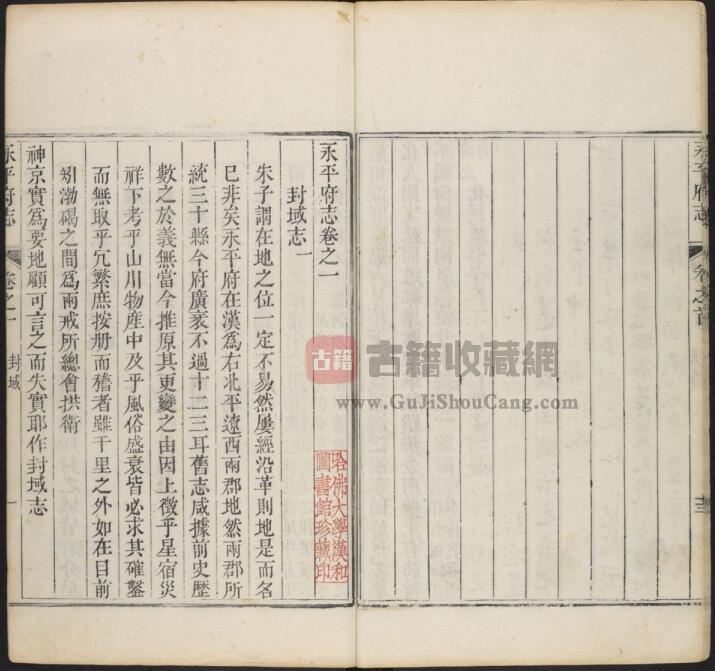 永平府志
卷之首
永平府志卷之一
封域志一
朱子謂在地之位一定不易然屢經沿革則地是而名
已非矣永平府在漢爲右北平遼西兩郡地然兩郡所
統三十縣今府廣袤不過十二三耳舊志咸據前史歷
數之於義無當今推原其更變之由因上徵乎星宿災
祥下考乎山川物産中及乎風俗盛衰皆必求其確鑿
而無取乎冗繁庶按册而稽者雖千里之外如在目前
矧渤碣之間爲兩戒所總會拱衛
神京實爲要地顧可言之而失實耶作封域志
永平府志
卷之一
封域
一
哈佛大學漢和
圖書館珍藏印
古籍
古籍收藏網
www.GuJiShouCang.com